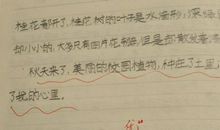 桂花都开了,桂花树的叶子是水滴形,深绿
却小小的,大多只有四片花制
秋天来了,美丽的校园植物,种在了土里,
了我的心里。